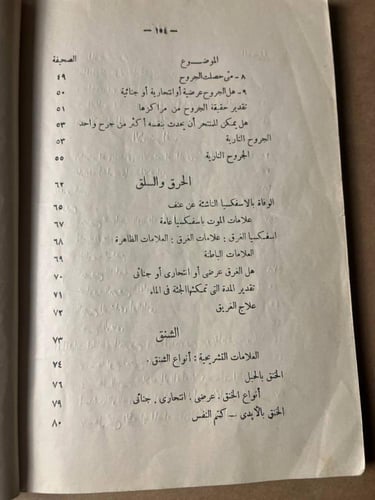 — ١٥٤ —
الموضـــوع الصحيفة
٨ - متى حصلت الجروح ٤٩
٩ - هل الجروح عرضية أو انتحارية أو جنائية ٥٠
تقدير حقيقة الجروح من مراكزها ٥١
هل يمكن للمنتحر أن يحدث بنفسه أكثر من جرح واحد ٥٣
الجروح النارية ٥٣
الجروح النارية ٥٥
الحرق والسلق ٦٢
الوفاة بالاسفكسيا الناشئة عن عنف ٦٥
علامات الموت باسفكسيا عامة ٦٧
اسفكسيا الغرق : علامات الغرق : العلامات الظاهرة ٦٨
العلامات الباطنة ٦٩
هل الغرق عرضى أو انتحارى أو جنائى ٧٠
تقدير المدة التى تمكثها الجثة فى الماء ٧١
علاج الغريق ٧٢
الشنق ٧٣
العلامات التشريحية : أنواع الشنق . ٧٤
الخنق بالحبل ٧٦
أنواع الخنق . عرضى . انتحارى . جنائى ٧٩
الخنق بالأيدى — كتم النفس ٨٠